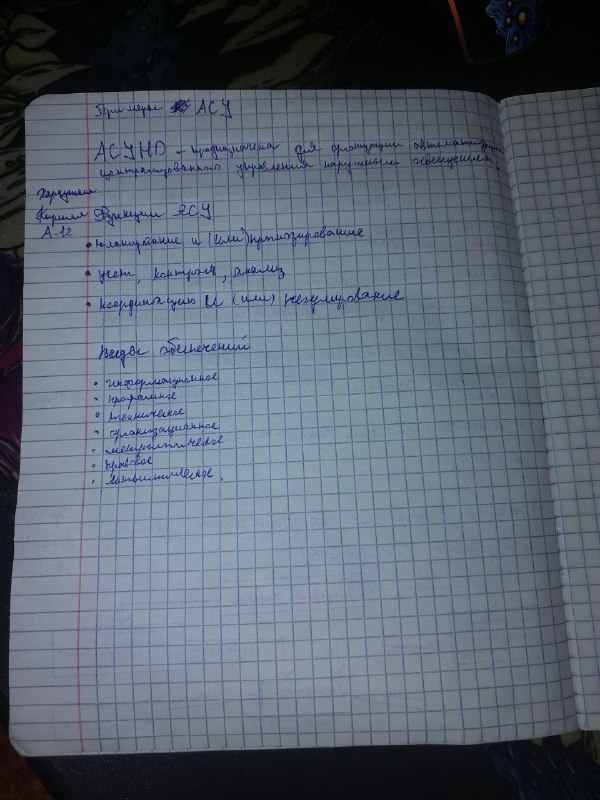 Примеры АСУ
АСУНО - предназначена для организации автоматизации
централизованного управления наружным освещением.
Кирилл
А-12
Функции АСУ
• планирование и (или) прогнозирование
• учет, контроль, анализ
• координацию и (или) регулирование
Виды обеспечений
• информационное
• програмное
• техническое
• организационное
• метрологическое
• правовое
• лингвистическое.